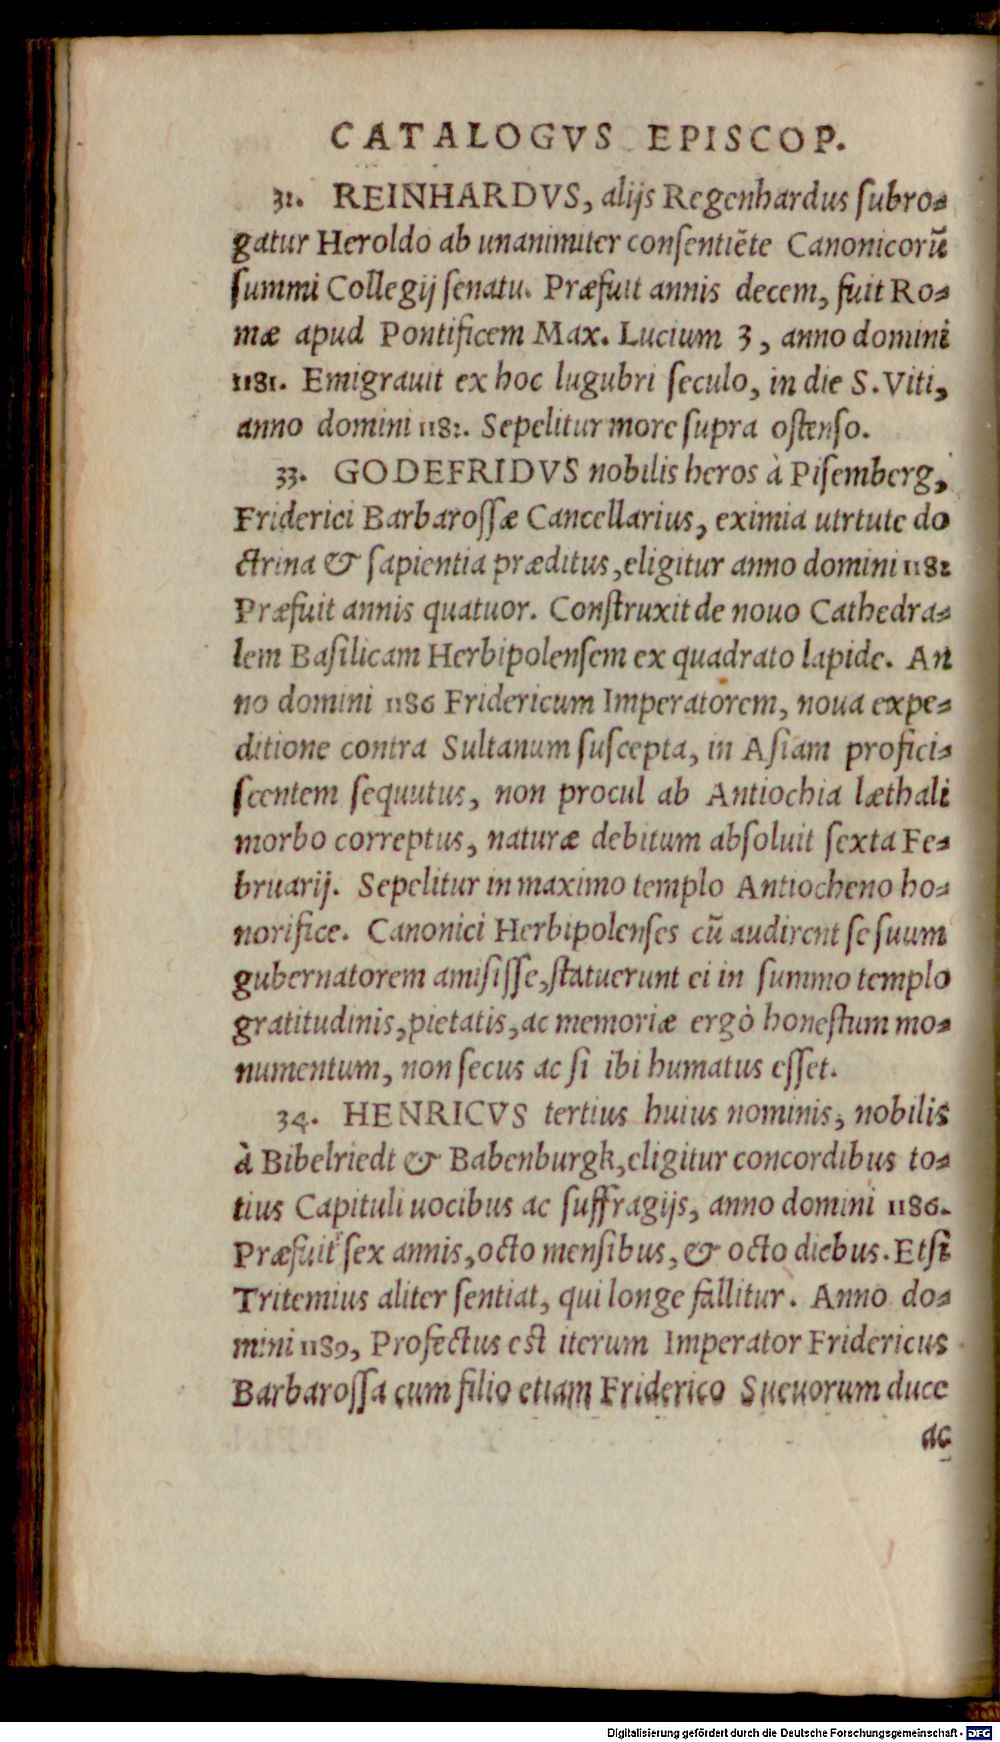 CATALOGVS EPISCOP.
32. REINHARDVS, alijs Regenhardus ſubro-
gatur Heroldo ab unanimiter conſentiẽte Canonicorũ
ſummi Collegij ſenatu. Præfuit annis decem, fuit Ro-
mæ apud Pontificem Max. Lucium 3, anno domini
1181. Emigrauit ex hoc lugubri ſeculo, in die S. Viti,
anno domini 1182. Sepelitur more ſupra oſtenſo.
33. GODEFRIDVS nobilis heros à Piſemberg,
Friderici Barbaroſſæ Cancellarius, eximia uirtute do
ctrina & ſapientia præditus, eligitur anno domini 1182
Præfuit annis quatuor. Conſtruxit de nouo Cathedra-
lem Baſilicam Herbipolenſem ex quadrato lapide. An
no domini 1186 Fridericum Imperatorem, noua expe-
ditione contra Sultanum ſuſcepta, in Aſiam profici-
ſcentem ſequutus, non procul ab Antiochia læthali
morbo correptus, naturæ debitum abſoluit ſexta Fe-
bruarij. Sepelitur in maximo templo Antiocheno ho-
norifice. Canonici Herbipolenſes cũ audirent ſe ſuum
gubernatorem amiſiſſe, ſtatuerunt ei in ſummo templo
gratitudinis, pietatis, ac memoriæ ergò honeſtum mo-
numentum, non ſecus ac ſi ibi humatus eſſet.
34. HENRICVS tertius huius nominis, nobilis
à Bibelriedt & Babenburgk, eligitur concordibus to-
tius Capituli uocibus ac ſuffragijs, anno domini 1186.
Præfuit ſex annis, octo menſibus, & octo diebus. Etſi
Tritemius aliter ſentiat, qui longe fallitur. Anno do-
mini 1189, Profectus eſt iterum Imperator Fridericus
Barbaroſſa cum filio etiam Friderico Sueuorum duce
ac
Digitalisierung gefördert durch die Deutsche Forschungsgemeinschaft - DFG